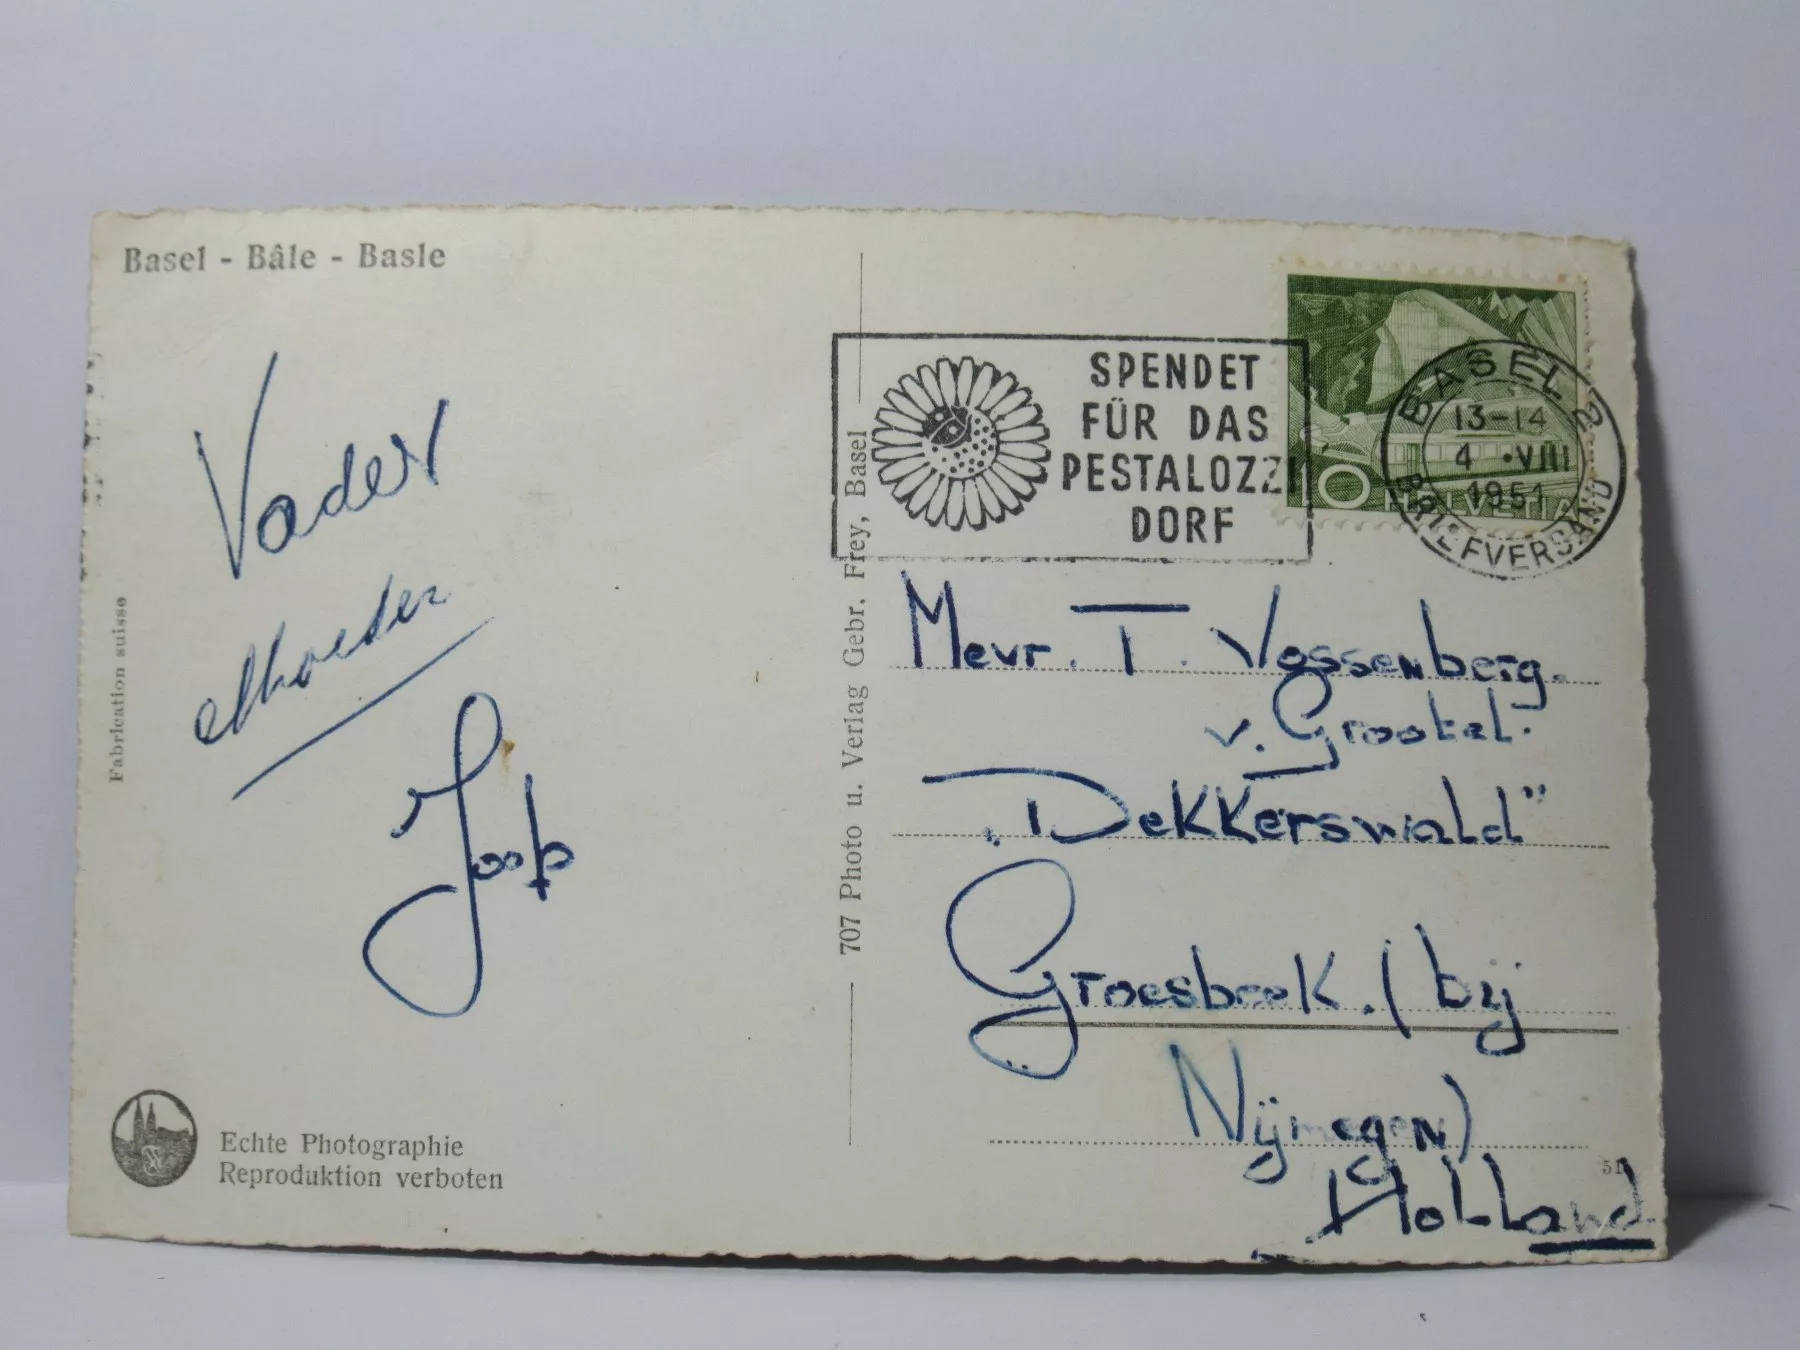 Basel - Bâle - Basle
Vader
Moeder
Joop
Fabrication suisse
Echte Photographie
Reproduktion verboten
707 Photo u. Verlag Gebr. Frey, Basel
SPENDET
FÜR DAS
PESTALOZZI
DORF
BASEL 2
13-14
4.VIII
1951
BRIEFVERSAND
10 HELVETIA
Mevr. T. Vossenberg.
v. Grootel.
„Dekkerswald"
Groesbeek. (bij
Nijmegen)
Holland
51